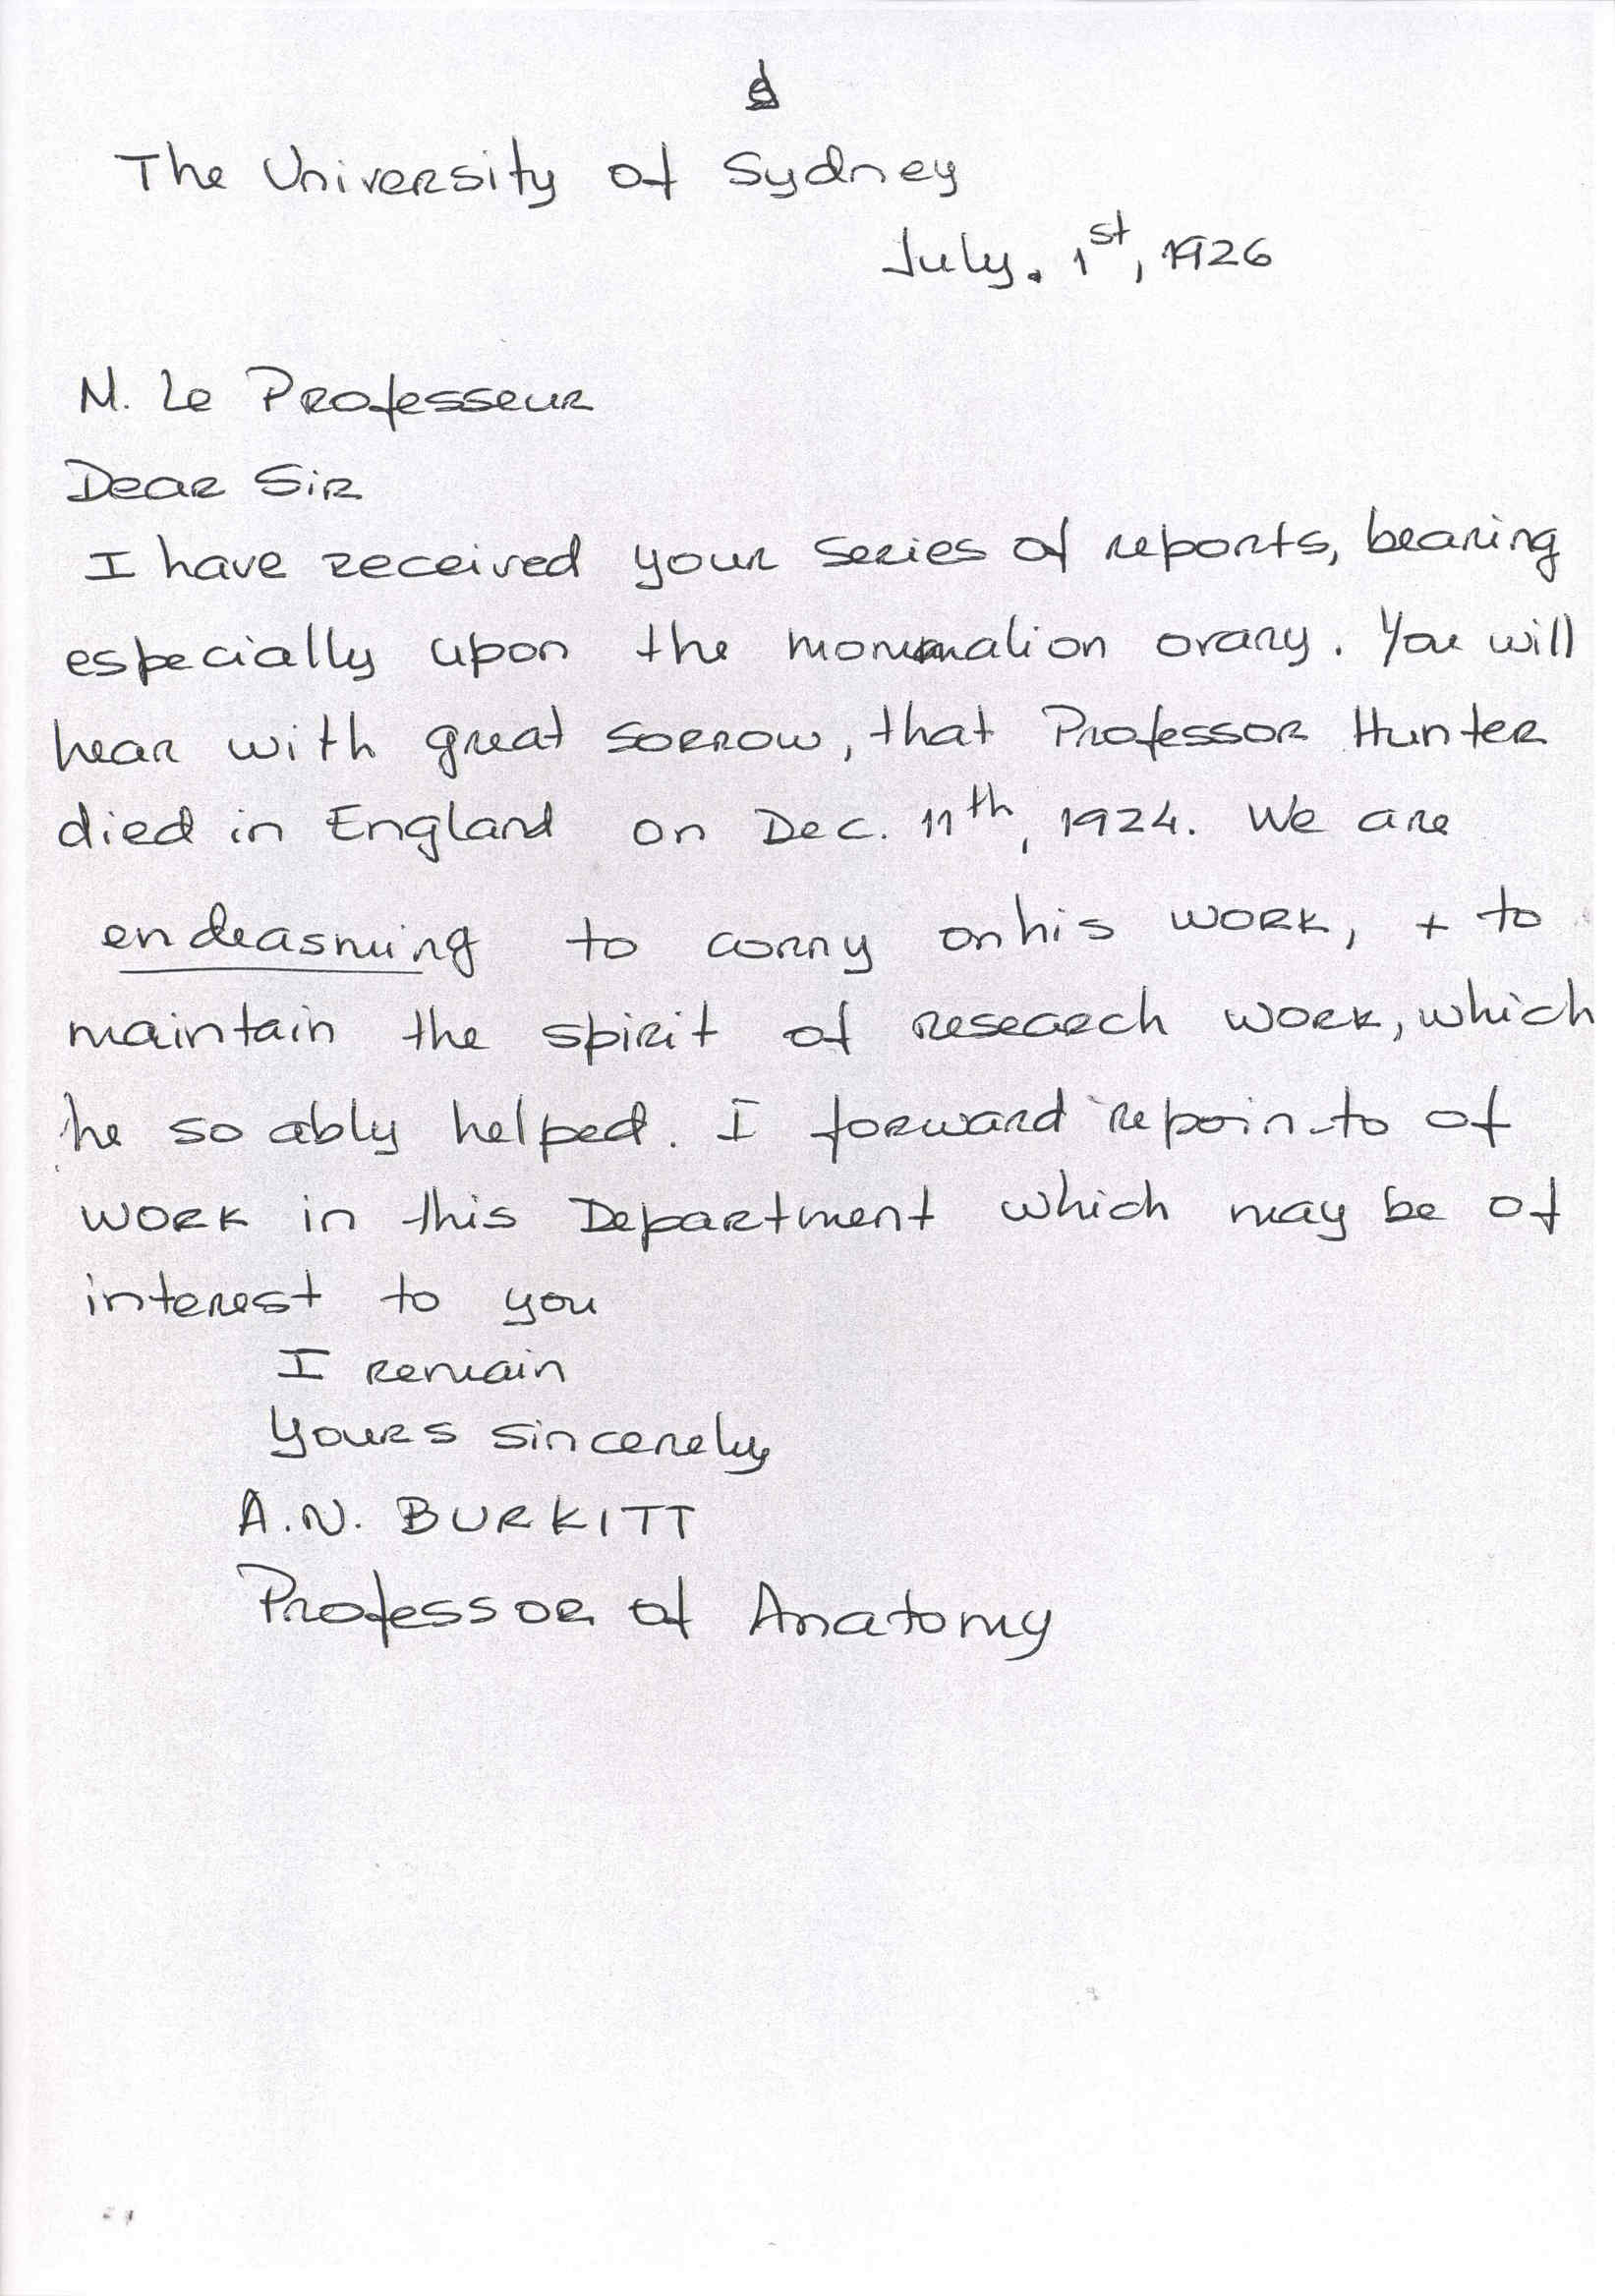 The University of Sydney
July. 1st, 1926
M. Le Professeur
Dear Sir
I have received your series of reports, bearing
especially upon the mommalion ovary. You will
hear with great sorrow, that Professor Hunter
died in England on Dec. 11th, 1924. We are
endeasnuing to corry on his work, + to
maintain the spirit of research work, which
he so ably helped. I forward repoin-to of
work in this Department which may be of
interest to you
I remain
Yours sincerely
A.N. BURKITT
Professor of Anatomy